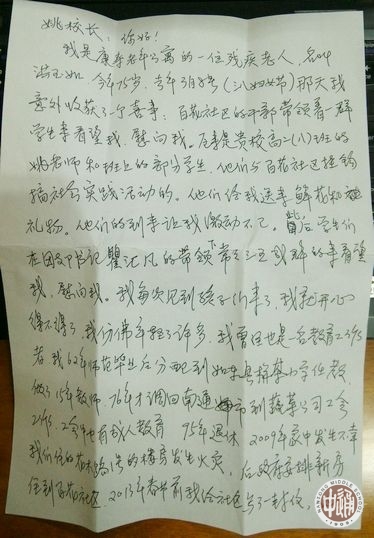 姚校长：你好！
我是康寿老年公寓的一位残疾老人，名叫
冯玉如 今年75岁，去年3月8号（三八妇女节）那天我
意外收获了一个喜事：百花社区的干部带领着一群
学生来看望我，慰问我。原来是贵校高二（八）班的
姚老师和班上的部分学生，他们与百花社区挂钩
搞社会实践活动的。他们给我送来鲜花和
礼物。他们的到来让我激动不已。此后学生们
在团支书记瞿沈凡的带领下常三五成群的来看望
我，慰问我。我每次见到孩子们来了，我就开心
得不得了，我仿佛年轻了许多，我曾经也是一名教育工作
者 我62年师范毕业后分配到如东县 小学任教
做了15年教师，76年才调回南通市到蔬菜公司工会
工作，工会也有成人教育 95年退休 2009年家中发生不幸
我们住的 楼房发生火灾，后政府安排新房
住到百花社区，2013年春节前我给社区写了一封信，
NANTONG MIDDLE SCHOOL
1909